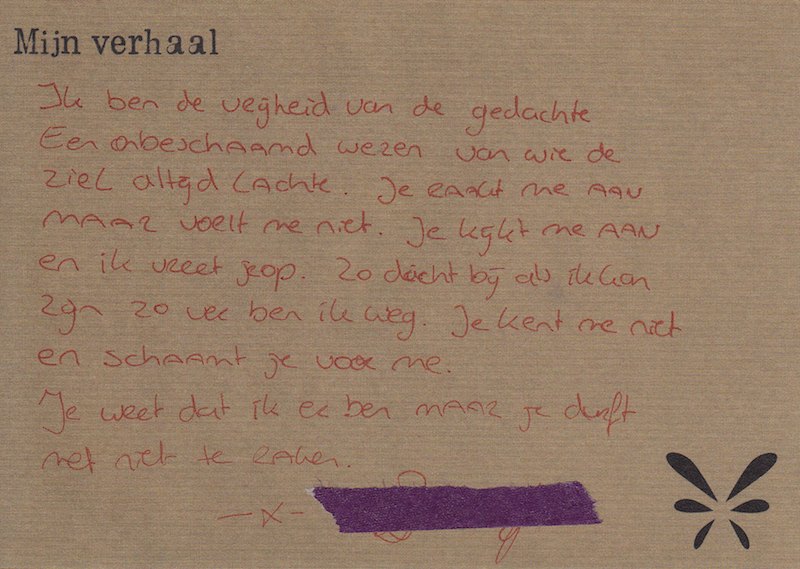 Mijn verhaal
Ik ben de veijheid van de gedachte
Een onbeschaamd wezen van wie de
ziel altijd lachte. Je raakt me aan
maar voelt me niet. Je kijkt me aan
en ik vreet je op. Zo dicht bij als ik kan
zijn zo ver ben ik weg. Je kent me niet
en schaamt je voor me.
Je weet dat ik er ben maar je durft
het niet te raken.
-x-